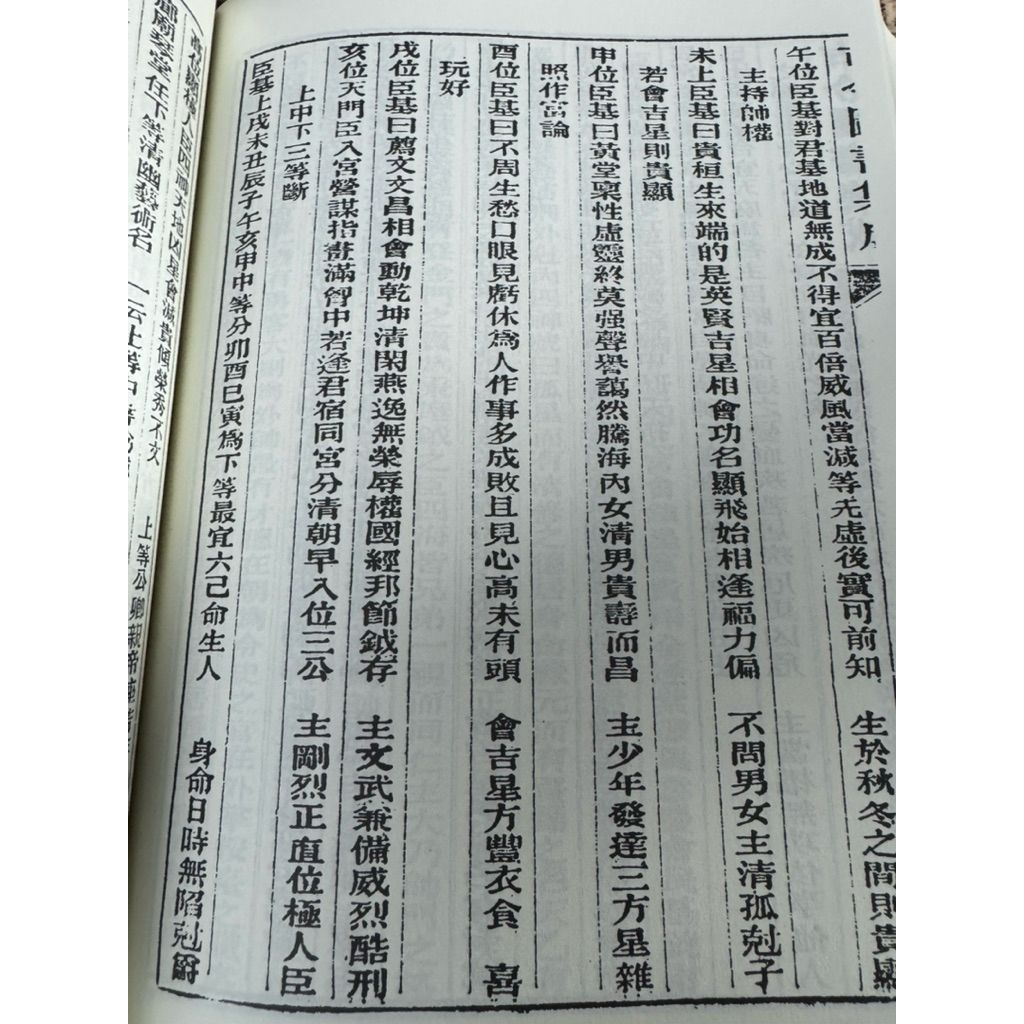 午位臣基對君基地道無成不得宜百倍威風當減等先虛後實可前知 生於秋冬之間則貴顯
主持帥權
未上臣基曰貴桓生來端的是英賢吉星相會功名顯飛始相逢福力偏 不問男女主清孤尅子
若會吉星則貴顯
申位臣基曰黃堂稟性虛靈終莫强聲譽藹然騰海內女清男貴壽而昌 主少年發達三方星雜
照作富論
酉位臣基曰不周生愁口眼見虧休爲人作事多成敗且見心高未有頭 會吉星方豐衣食 喜
玩好
戌位臣基曰薦文文昌相會動乾坤清閑燕逸無榮辱權國經邦節鉞存 主文武兼備威烈酷刑
亥位天門臣入宮營謀指畫滿胷中若逢君宿同宮分清朝早入位三公 主剛烈正直位極人臣
上中下三等斷
臣基上戌未丑辰子午亥甲中等分卯酉巳寅爲下等最宜六己命生人 身命日時無陷尅爵
天地凶星會減貴
上等公卿親帝
任下等清幽藝術名 一云上等中等